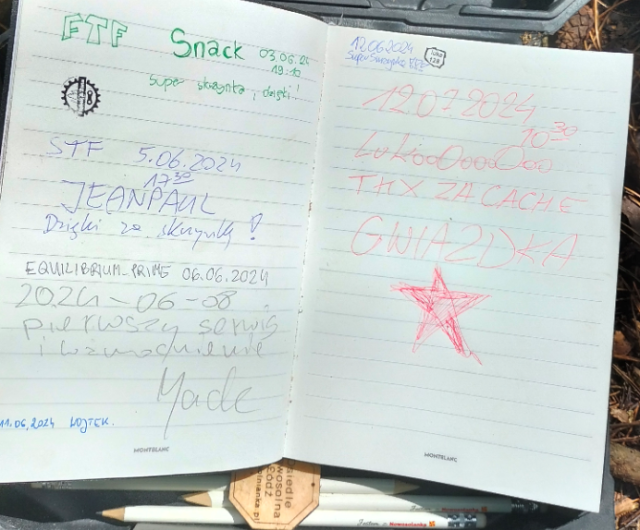 FTF Snack 03.06.24
19:10
Super skrzynka, dzięki!
8
STF 5.06.2024
17³⁰
JEANPAUL
Dzięki za skrzynkę!
EQUILIBRIUM-PRIME 06.06.2024
2024-06-08
pierwszy serwis
i wzmocnienie
Made
11.06.2024 WOJTEK.
MONTBLANC
12.06.2024
Super Skrzynka
12 07 2024
10³⁰
LuKooOoooOooo
THX ZA CACHE
GWIAZDKA
MONTBLANC